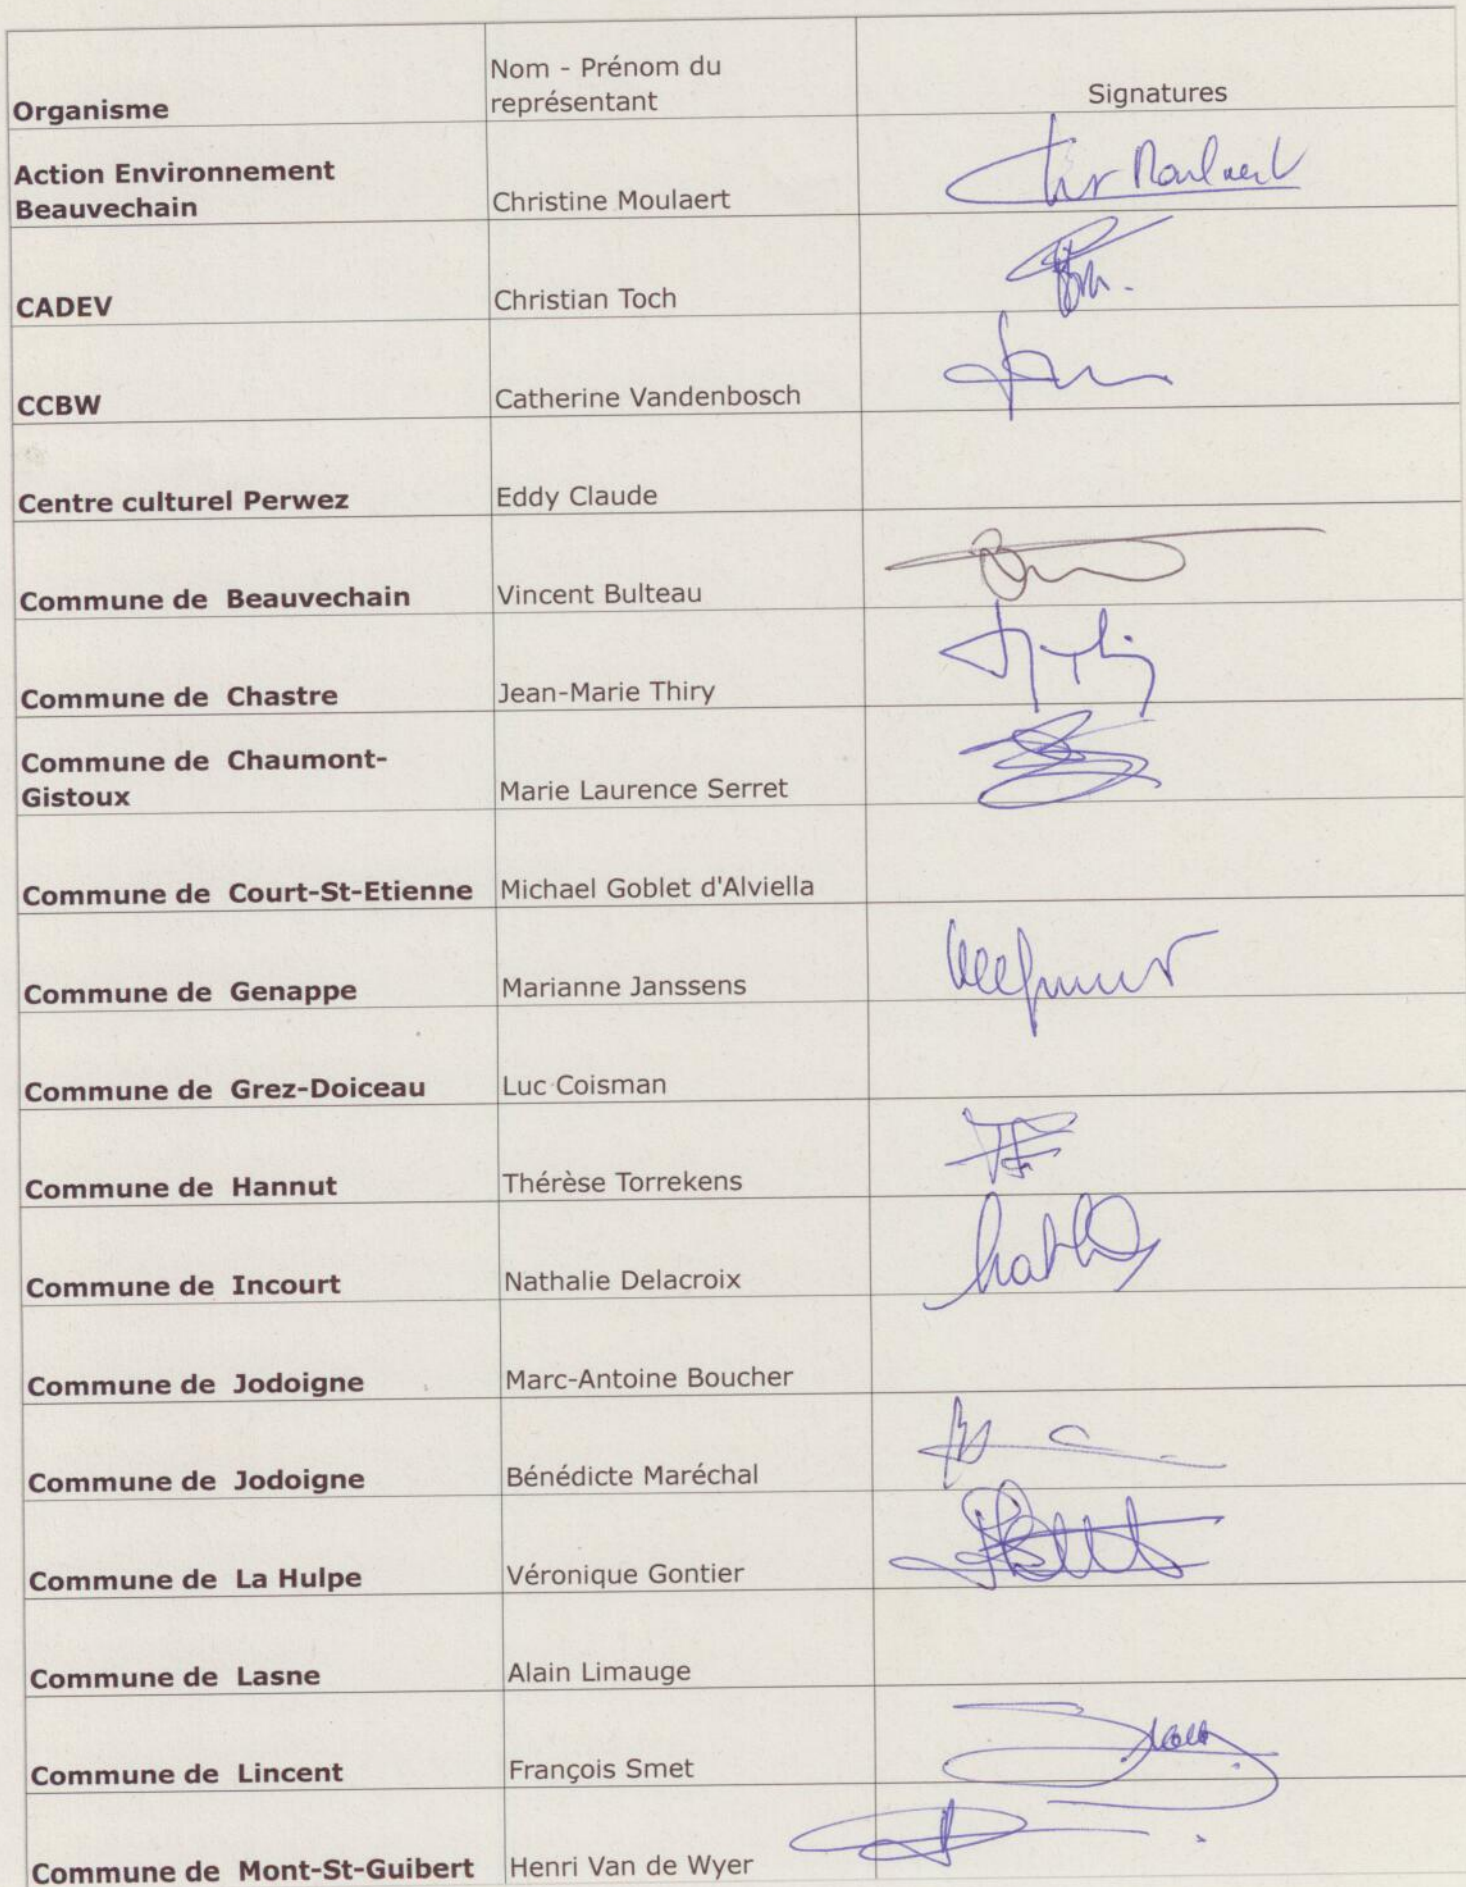 Organisme
Nom - Prénom du
représentant
Signatures
Action Environnement
Beauvechain
Christine Moulaert
CADEV
Christian Toch
CCBW
Catherine Vandenbosch
Centre culturel Perwez
Eddy Claude
Commune de Beauvechain
Vincent Bulteau
Commune de Chastre
Jean-Marie Thiry
Commune de Chaumont-
Gistoux
Marie Laurence Serret
Commune de Court-St-Etienne
Michael Goblet d'Alviella
Commune de Genappe
Marianne Janssens
Commune de Grez-Doiceau
Luc Coisman
Commune de Hannut
Thérèse Torrekens
Commune de Incourt
Nathalie Delacroix
Commune de Jodoigne
Marc-Antoine Boucher
Commune de Jodoigne
Bénédicte Maréchal
Commune de La Hulpe
Véronique Gontier
Commune de Lasne
Alain Limauge
Commune de Lincent
François Smet
Commune de Mont-St-Guibert
Henri Van de Wyer